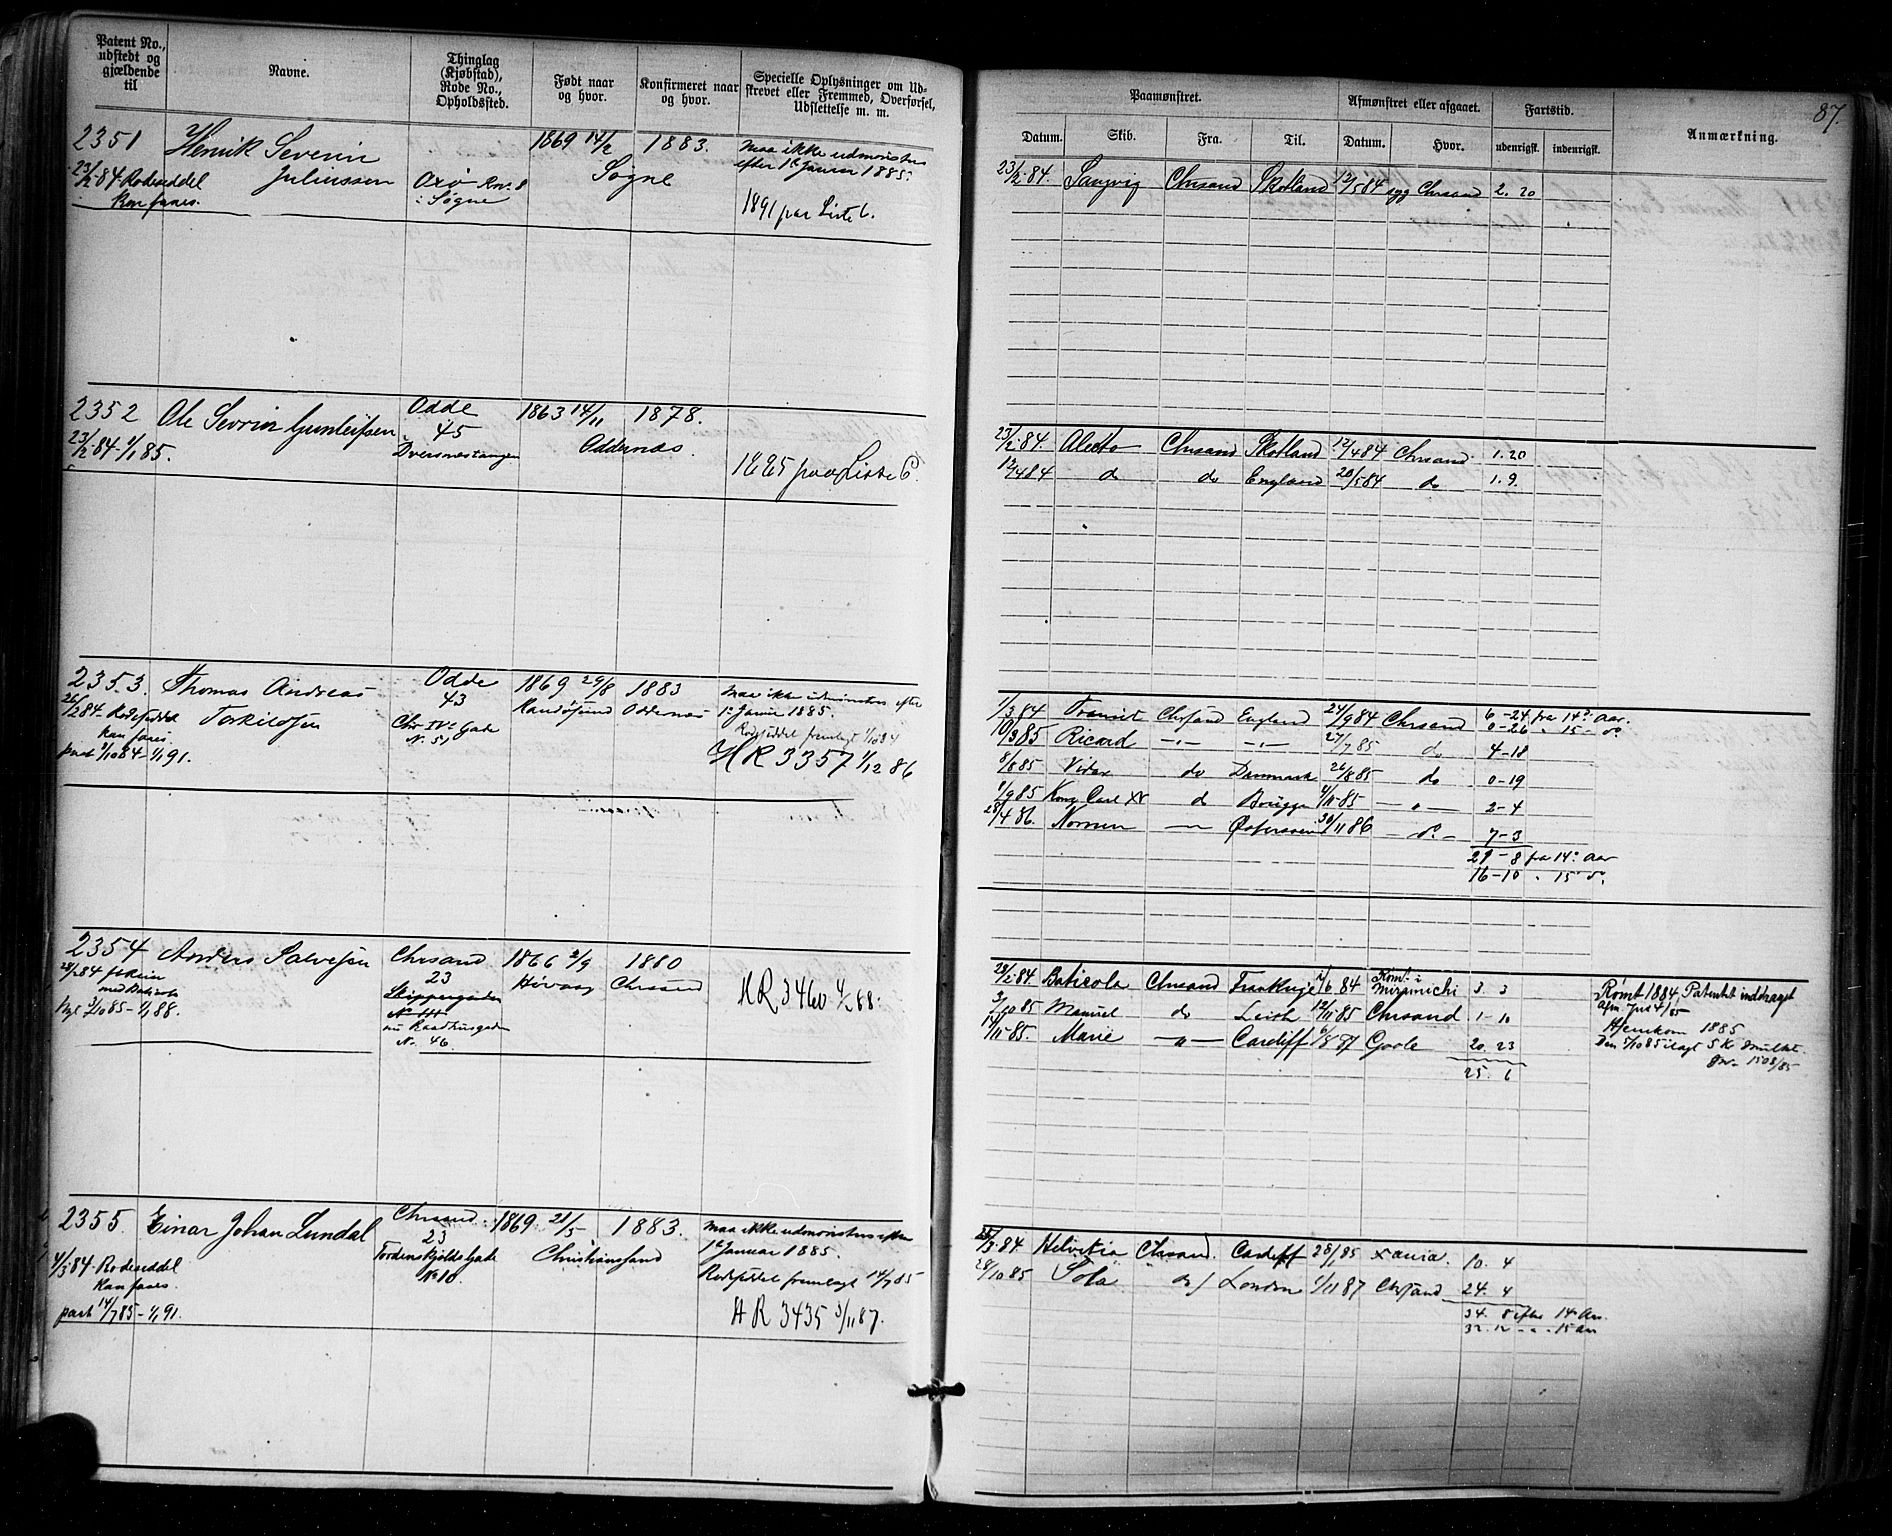 87.
Patent No., udstedt og gjældende til
Navne.
Thinglag (Kjøbstad), Rode No., Opholdssted.
Født naar og hvor.
Konfirmeret naar og hvor.
Specielle Oplysninger om Udskrevet eller Fremmed, Overførsel, Udslettelse m. m.
Paamønstret.
Afmønstret eller afgaaet.
Fartstid.
Anmærkning.
Datum.
Skib.
Fra.
Til.
Datum.
Hvor.
udenrigsk.
indenrigsk.
2351 Henrik Severin 1869 14/2 1883. maa ikke udmønstres
23/2 84 Rodeseddel Juliussen Søgne efter 1e Januar 1885.
kan faaes. i Søgne 1891 paa Liste C.
23/2 84. Chrsand Skotland 12/5 84 syg Chrsand 2. 20
2352 Ole Sevrin Gunleifsen Odde 1863 14/11 1878.
23/2 84 1/1 85. 45 Oddernæs.
Dversnestangen 1885 paa Liste C.
23/2 84. Alecto Chrsand Skotland 12/4 84 Chrsand 1. 20
12/4 84 do do England 20/5 84 do 1. 9.
2353. Thomas Andreas Odde 1869 29/8 1883 maa ikke udmønstres efter
26/2 84 Rodeseddel Torkildsen 43 Randøsund Oddernæs 1e Januar 1885.
kan faaes. Chr IVs Gade Rodeseddel fremlagt 1/10 84
pat 1/10 84 - 1/1 91. N. 51 HR 3357 1/12 86
1/3 84 Transit Chrsand England 24/9 84 Chrsand 6 - 24 fra 14de Aar.
0-26 " 15 - do
10/3 85 Ricard -"- -"- 27/7 85 do 4 - 18
8/8 85 do Danmark 26/8 85 do 0 - 19
1/9 85 Kong Carl XV do 4/11 - 85 - " - 2 - 4
28/4 86. Nornen Østersøen 30/11 86 - do - 7 - 3
21 - 8 fra 14de Aar
16 - 10 " 15 do.
2354 Anders Salvesen Chrsand 1866 2/9 1880
28/2 84 23 Høvaag Chrsand HR 3460 4/2 88.
Skippergaden
Nyt 3/10 85 - 1/1 88. No 44
nu Raadhusgaden
No. 46.
28/2 84. Baticola Chrsand 7/6 84 Rømt i Miramichi 3. 3 Rømt 1884, Patentet inddraget
3/10 85 Manuel do Leith 12/11 85 Chrsand 1 - 10 Hjemkom 1885
14/11 85. Marie - " - Cardiff 6/8 87 Goole 20. 23 Den 5/10 85 ilagt 5 Kr Mulkt.
25. 6
2355. Einar Johan Lundal Chrsand 1869 21/5 1883. maa ikke udmønstres efter
23 1e Januar 1885.
4/3 84 Rodeseddel Tordenskjolds Gade Christianssand
kan faaes. No 10. Rodeseddel fremlagt 14/7 85
pat 14/7 85 - 1/1 91. HR 3435 3/11 87.
3. 84 Helvetia Chrsand. Cardiff 28/1 85 Xania. 10. 4
28/10 85 Sola do London 1/11 87 Chrsand 24. 4
34. 8 efter 14 Aar.
32. 12 - " - 15 Aar